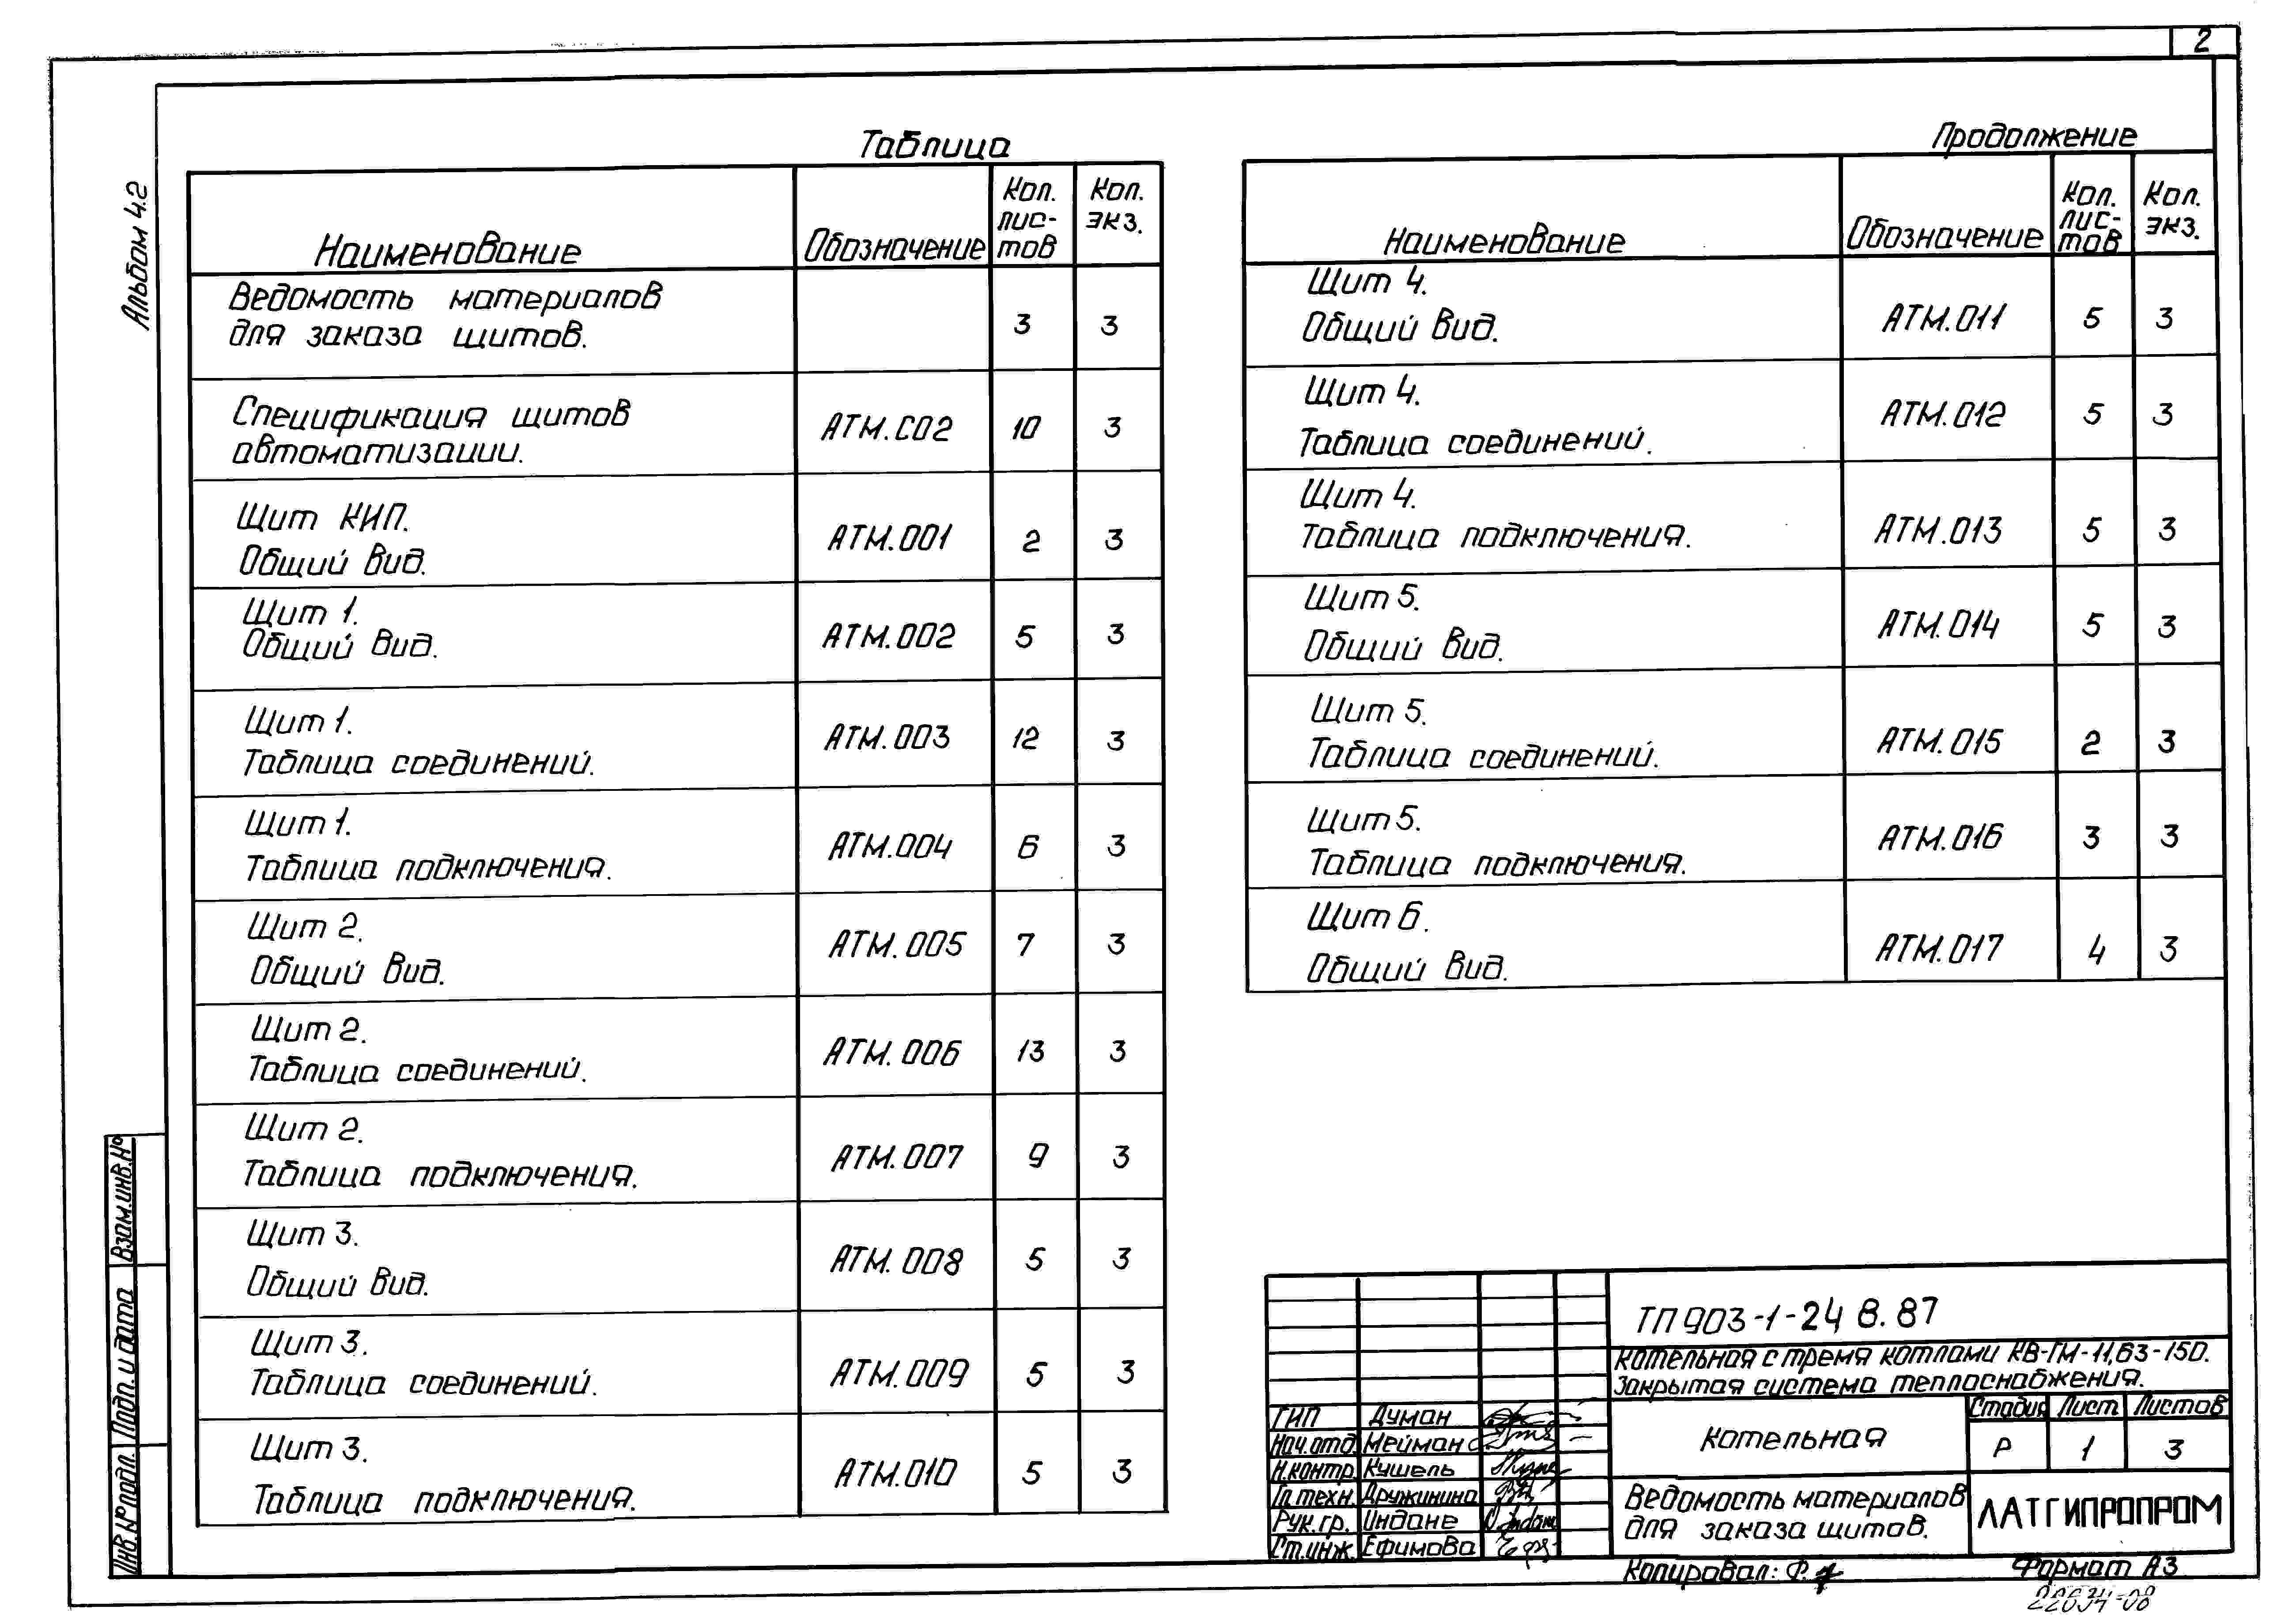 2
Альбом 4.2
Таблица
Наименование Обозначение Кол. лис- тов Кол. экз.
Ведомость материалов
для заказа щитов. 3 3
Спецификация щитов
автоматизации. АТМ.СО2 10 3
Щит КИП.
Общий вид. АТМ.001 2 3
Щит 1.
Общий вид. АТМ.002 5 3
Щит 1.
Таблица соединений. АТМ.003 12 3
Щит 1.
Таблица подключения. АТМ.004 6 3
Щит 2.
Общий вид. АТМ.005 7 3
Щит 2.
Таблица соединений. АТМ.006 13 3
Щит 2.
Таблица подключения. АТМ.007 9 3
Щит 3.
Общий вид. АТМ.008 5 3
Щит 3.
Таблица соединений. АТМ.009 5 3
Щит 3.
Таблица подключения. АТМ.010 5 3
Продолжение
Наименование Обозначение Кол. лис- тов Кол. экз.
Щит 4.
Общий вид. АТМ.011 5 3
Щит 4.
Таблица соединений. АТМ.012 5 3
Щит 4.
Таблица подключения. АТМ.013 5 3
Щит 5.
Общий вид. АТМ.014 5 3
Щит 5.
Таблица соединений. АТМ.015 2 3
Щит 5.
Таблица подключения. АТМ.016 3 3
Щит 6.
Общий вид. АТМ.017 4 3
ТП 903-1-248.87
Котельная с тремя котлами КВ-ГМ-11,63-150.
Закрытая система теплоснабжения.
ГИП Думан
Нач.отд. Мейман
Н.контр. Кушель
Гл.техн. Дружинина
Рук.гр. Индане
Ст.инж. Ефимова
Котельная
Стадия Лист Листов
Р 1 3
Ведомость материалов
для заказа щитов.
ЛАТГИПРОПРОМ
Копировал: Ф.
Формат А3
22654-08
Взам.инв.№
Подп. и дата
Инв.№ подл.